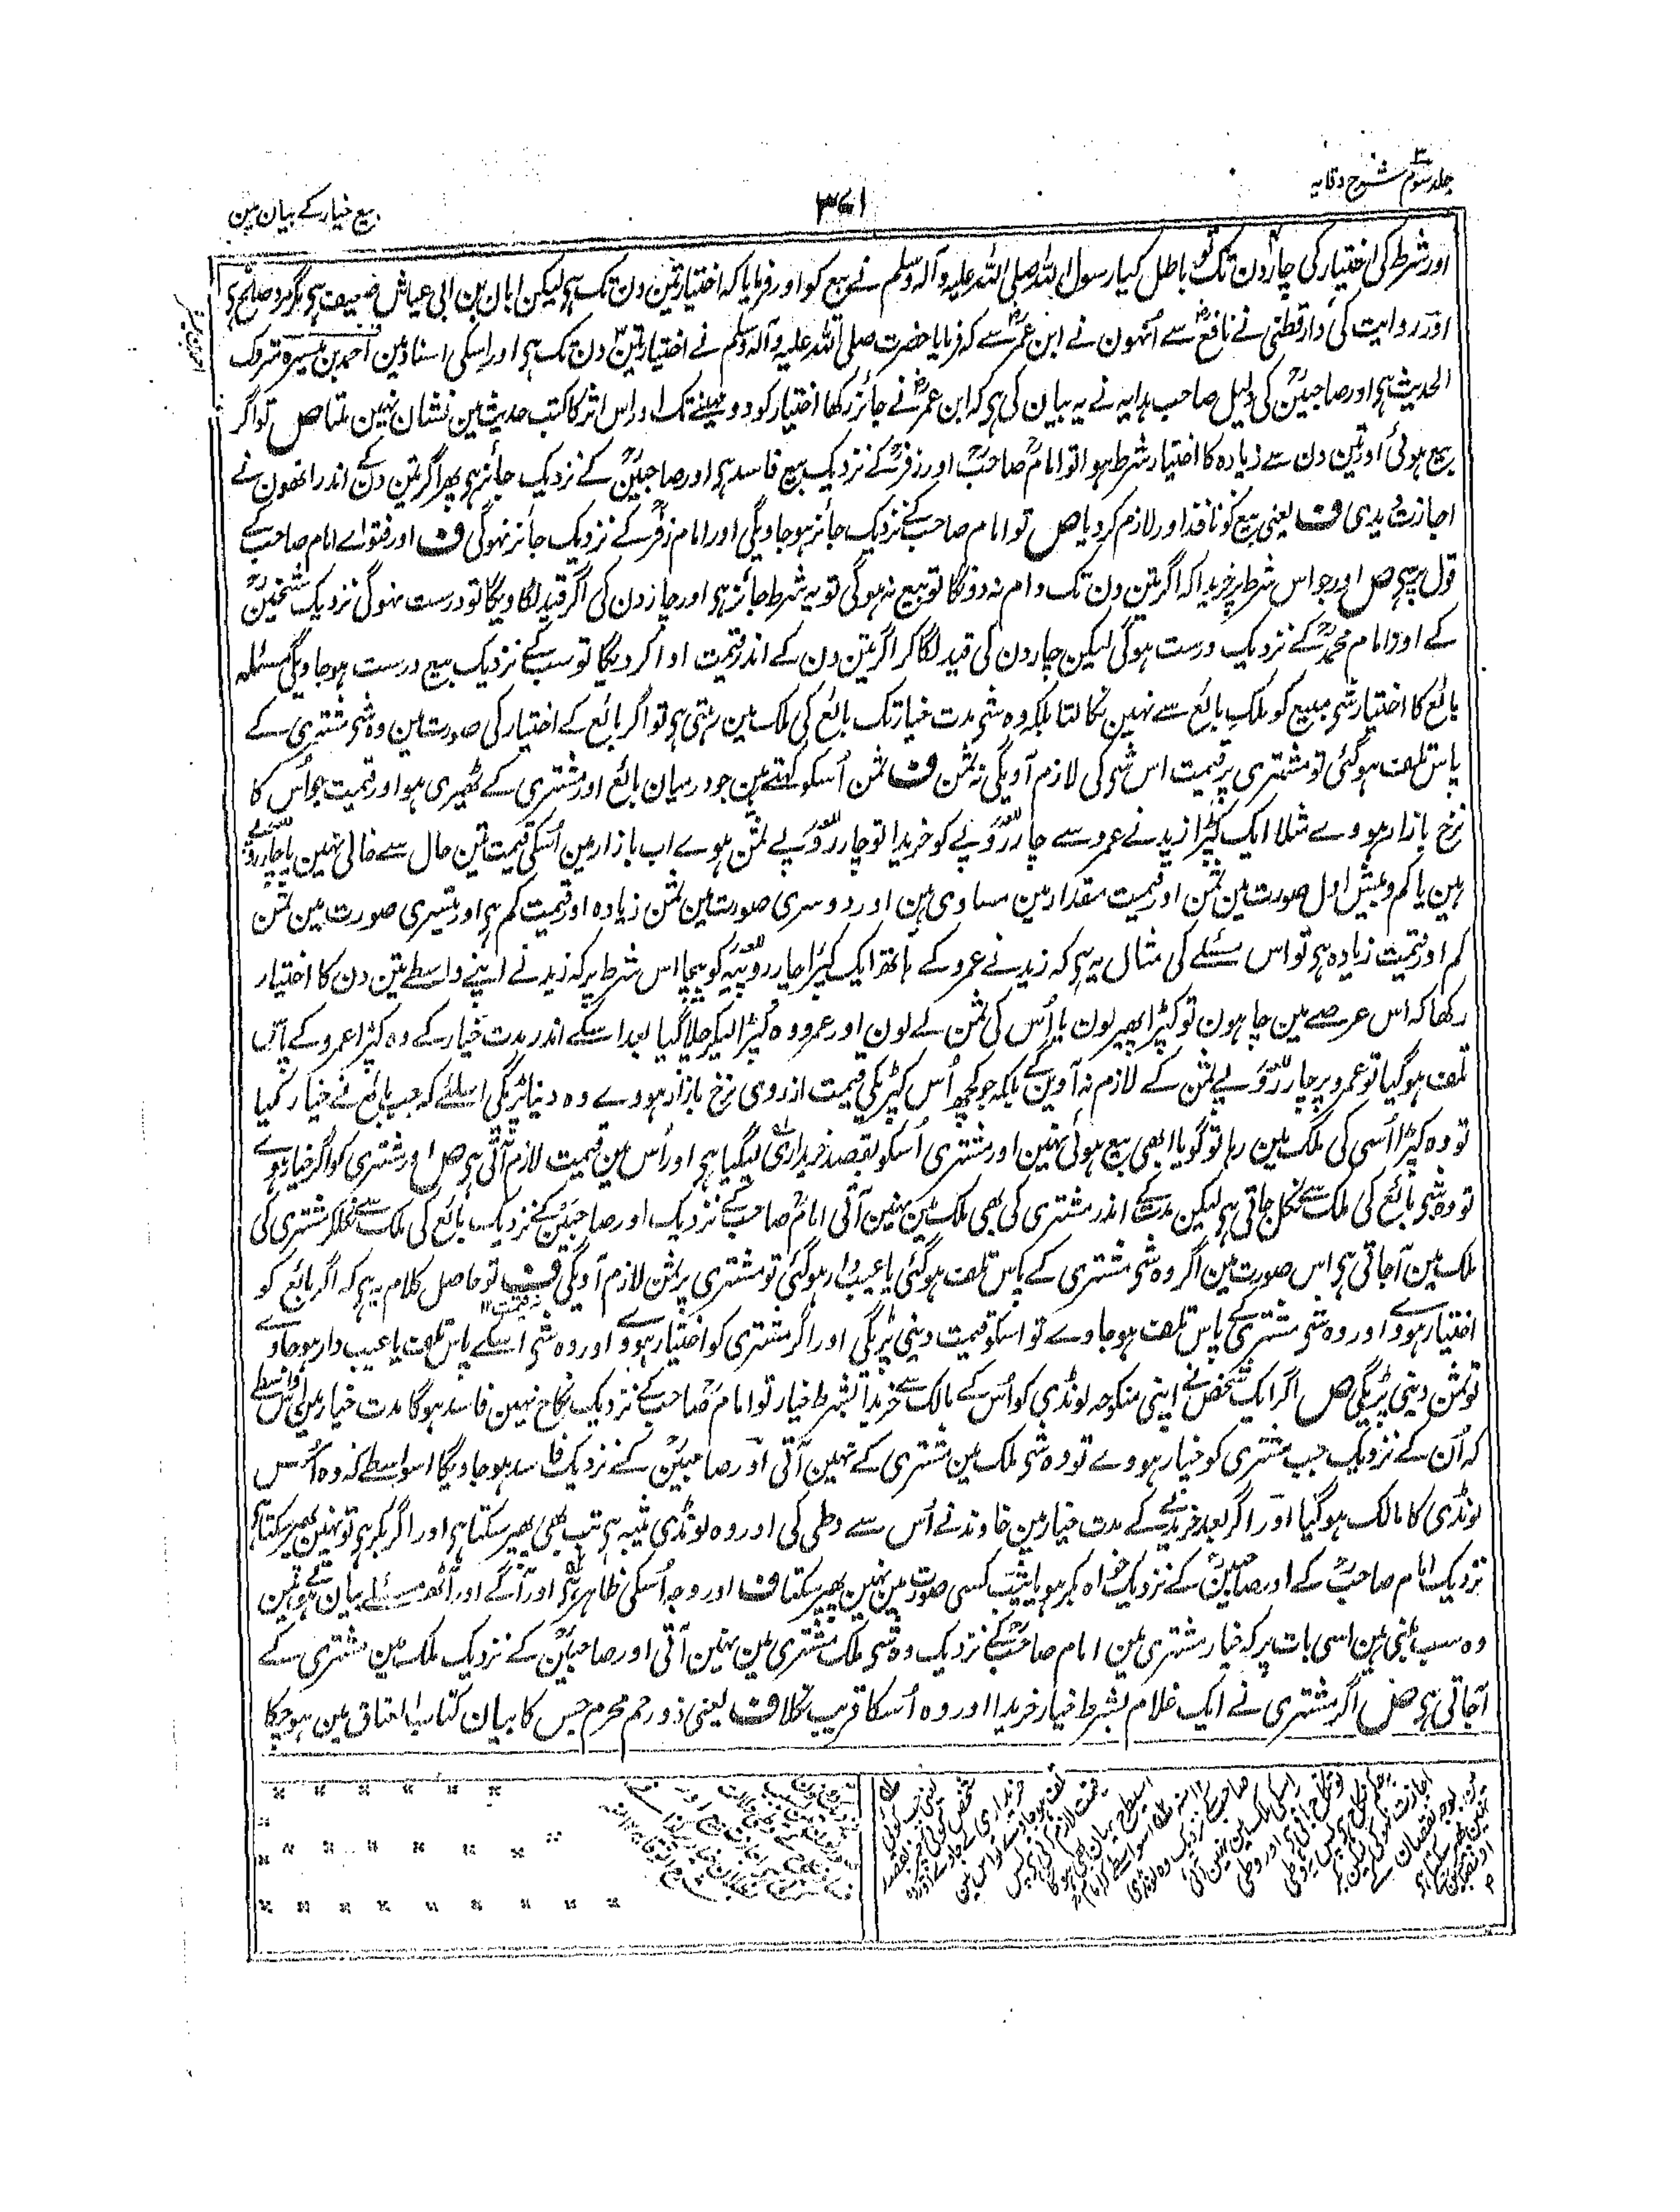 جلد سوم شرح وقایہ
۳۶۱
بیع خیار کے بیان مین
اور شرط کی اختیار کی چار دن تک تو باطل کیا رسول اللہ صلی اللہ علیہ وآلہ وسلم نے بیع کو اور فرمایا کہ اختیار تین دن تک ہی لیکن ابان بن ابی عیاش ضعیف ہی مگر مرد صالح ہی
اور روایت کی دارقطنی نے نافع سے انہون نے ابن عمر سے کہ فرمایا حضرت صلی اللہ علیہ وآلہ وسلم نے اختیار تین دن تک ہی اور اسکی اسناد مین احمد بن میسرہ متروک
الحدیث ہی اور صاحبین کی دلیل صاحب ہدایہ نے یہ بیان کی ہی کہ ابن عمر نے جائز رکھا اختیار کو دو مہینے تک اور اس اثر کا کتب حدیث مین نشان نہین ملتا ص تو اگر
بیع ہوئی اور تین دن سے زیادہ کا اختیار شرط ہوا تو امام صاحب اور زفر کے نزدیک بیع فاسد ہی اور صاحبین کے نزدیک جائز ہی پھر اگر تین دن کے اندر انھون نے
اجازت دیدی ف یعنی بیع کو نافذ اور لازم کر دیا ص تو امام صاحب کے نزدیک جائز ہو جاویگی اور امام زفر کے نزدیک جائز نہوگی ف اور فتوا ے امام صاحب کے
قول پر ہی ص اور جو اس شرط پر خریدا کہ اگر تین دن تک دام نہ دونگا تو بیع نہ ہوگی تو یہ شرط جائز ہی اور چار دن کی اگر قید لگاویگا تو درست نہوگی نزدیک شیخین
کے اور امام محمد کے نزدیک درست ہوگی لیکن چار دن کی قید لگا کر اگر تین دن کے اندر قیمت ادا کر دیگا تو سب کے نزدیک بیع درست ہو جاویگی مسئلہ
بائع کا اختیار شی مبیع کو ملک بائع سے نہین نکالتا بلکہ وہ شی مدت خیار تک بائع کی ملک مین رہتی ہی تو اگر بائع کے اختیار کی صورت مین وہ شی مشتری کے
پاس تلف ہو گئی تو مشتری پر قیمت اس شی کی لازم آویگی نہ ثمن ف ثمن اُسکو کہتے ہین جو درمیان بائع اور مشتری کے ٹھہری ہو اور قیمت جو اُس کا
نرخ بازار ہو وے مثلا ایک کپڑا زید نے عمرو سے چار روپے کو خریدا تو چار روپے ثمن ہوے اب بازار مین اُسکی قیمت تین حال سے خالی نہین یا چار روپے
ہین یا کم و بیش اول صورت مین ثمن اور قیمت مقدار مین مساوی ہین اور دوسری صورت مین ثمن زیادہ اور قیمت کم ہی اور تیسری صورت مین ثمن
کم اور قیمت زیادہ ہی تو اس مسئلے کی مثال یہ ہی کہ زید نے عمرو کے ہاتھ ایک کپڑا چار روپیہ کو بیچا اس شرط پر کہ زید نے اپنے واسطے تین دن کا اختیار
رکھا کہ اس عرصے مین چاہون تو کپڑا پھیر لون یا اُس کی ثمن لے لون اور عمرو وہ کپڑا لیکر چلا گیا بعد اسکے اندر مدت خیار کے وہ کپڑا عمرو کے پاس
تلف ہو گیا تو عمرو پر چار روپے ثمن کے لازم نہ آوینگے بلکہ جو کچھ اُس کپڑیکی قیمت از روی نرخ بازار ہو وے وہ دینا پڑیگی اسلئے کہ جب بائع نے خیار کیا
تو وہ کپڑا اُسی کی ملک مین رہا تو گویا ابھی بیع ہوئی نہین اور مشتری اُسکو بقصد خریداری لیگیا ہی اور اُس مین قیمت لازم آتی ہی ص اور مشتری کو اگر خیار ہو وے
تو وہ شی بائع کی ملک سے نکل جاتی ہی لیکن مدت کے اندر مشتری کی بھی ملک مین نہین آتی امام صاحب کے نزدیک اور صاحبین کے نزدیک بائع کی ملک سے نکلکر مشتری کی
ملک مین آجاتی ہی اس صورت مین اگر وہ شی مشتری کے پاس تلف ہو گئی یا عیب دار ہو گئی تو مشتری پر ثمن لازم آویگی نہ قیمت ف تو حاصل کلام یہ ہی کہ اگر بائع کو
اختیار ہو وے اور وہ شی مشتری کے پاس تلف ہو جاوے تو اسکو قیمت دینی پڑیگی اور اگر مشتری کو اختیار ہو وے اور وہ شی اسکے پاس تلف یا عیب دار ہو جاوے
تو ثمن دینی پڑیگی ص اگر ایک شخص نے اپنی منکوحہ لونڈی کو اُس کے مالک سے خریدا بشرط خیار تو امام صاحب کے نزدیک نکاح نہین فاسد ہوگا مدت خیار مین اس واسطے
کہ اُن کے نزدیک جب مشتری کو خیار ہو وے تو وہ شی ملک مین مشتری کے نہین آتی اور صاحبین کے نزدیک فاسد ہو جاویگا اسواسطے کہ وہ اُس
لونڈی کا مالک ہو گیا اور اگر بعد خریدنے کے مدت خیار مین خاوند نے اُس سے وطی کی اور وہ لونڈی ثیبہ ہی تب بھی پھیر سکتا ہی اور اگر بکر ہی تو نہین پھیر سکتا ہی
نزدیک امام صاحب کے اور صاحبین کے نزدیک خواہ بکر ہو یا ثیب کسی صورت مین نہین پھیر سکتا ف اور وجہ اُسکی ظاہر ہی اور آگے اور آٹھ مسئلے بیان ہوتے ہین
وہ سب مبنی ہین اسی بات پر کہ خیار مشتری مین امام صاحب کے نزدیک وہ شی ملک مشتری مین نہین آتی اور صاحبین کے نزدیک ملک مین مشتری کے
آجاتی ہی ص اگر مشتری نے ایک غلام بشرط خیار خریدا اور وہ اُسکا قریب نکلا ف یعنی ذو رحم محرم جس کا بیان کتاب العتاق مین ہو چکا